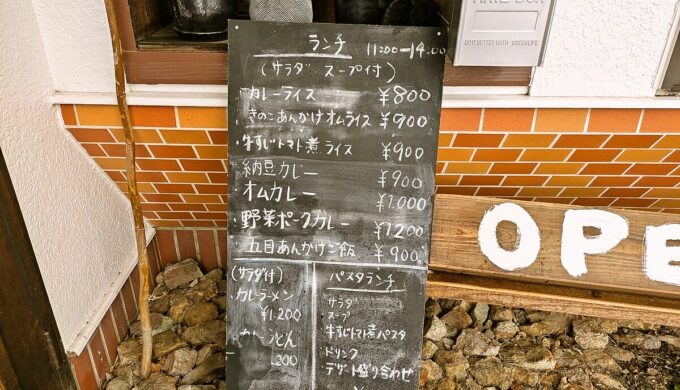 ランチ 11:00-14:00
(サラダ・スープ付)
・カレーライス ¥800
・きのこあんかけオムライス ¥900
・牛すじトマト煮ライス ¥900
・納豆カレー ¥900
・オムカレー ¥1,000
・野菜ポークカレー ¥1,200
・五目あんかけご飯 ¥900
(サラダ付)
・カレーラーメン
¥1,200
うどん
200
パスタランチ
・サラダ
・スープ
・牛すじトマト煮パスタ
・ドリンク
・デザート盛り合わせ
¥
OPE